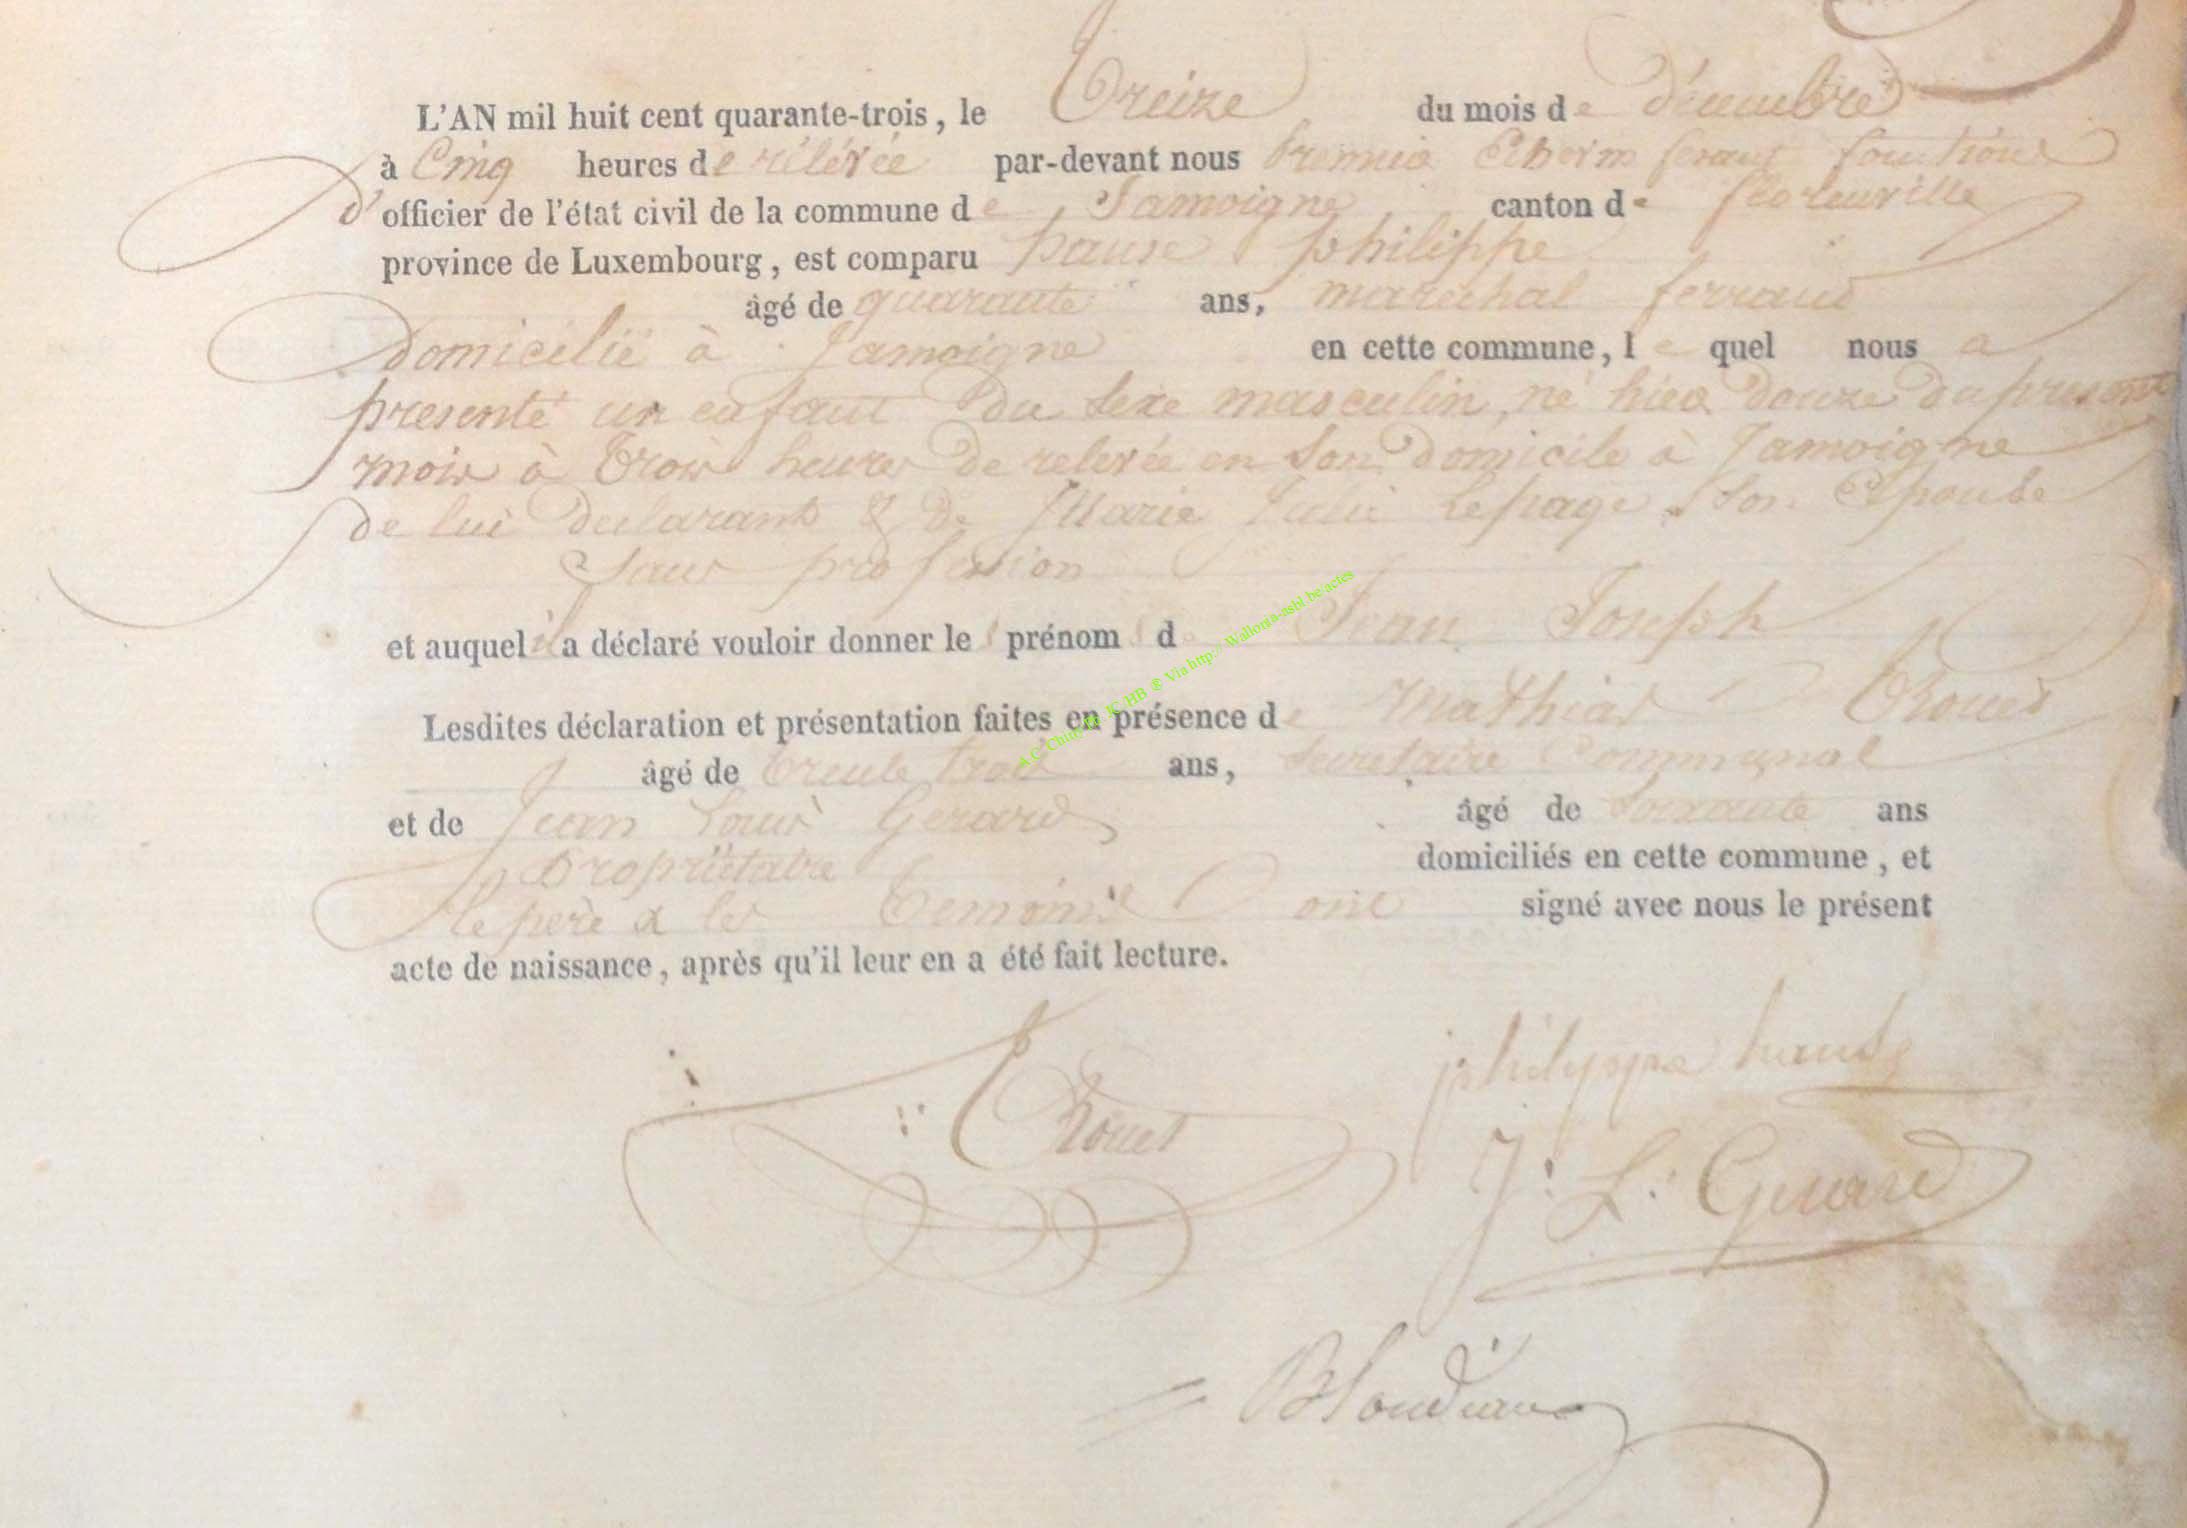 L'AN mil huit cent quarante-trois, le Treize du mois de décembre
à Cinq heures de rélévée par-devant nous premier Echevin fesant fonctions
d'officier de l'état civil de la commune de Jamoigne canton de florenville
province de Luxembourg, est comparu hause philippe
âgé de quarante ans, maréchal ferrand
domicilié à Jamoigne en cette commune, lequel nous a
presenté un enfant du sexe masculin, né hier douze du present
mois à Trois heures de relevée en son domicile à Jamoigne
de lui declarant & de Marie Julie Lepage son Epouse
Sans profession
et auquel il a déclaré vouloir donner les prénoms de Jean Joseph
Lesdites déclaration et présentation faites en présence de Mathias Thouet
âgé de trente trois ans, Secretaire Communal
et de Jean Louis Gerard âgé de soixante ans
Propriétaire domiciliés en cette commune, et
le père & les temoins ont signé avec nous le présent
acte de naissance, après qu'il leur en a été fait lecture.
philippe hause
Thouet
J. L. Gerard
Blondiaux
A.C. Chiny © JC HB ® Via http://Wallonia-asbl.be/actes